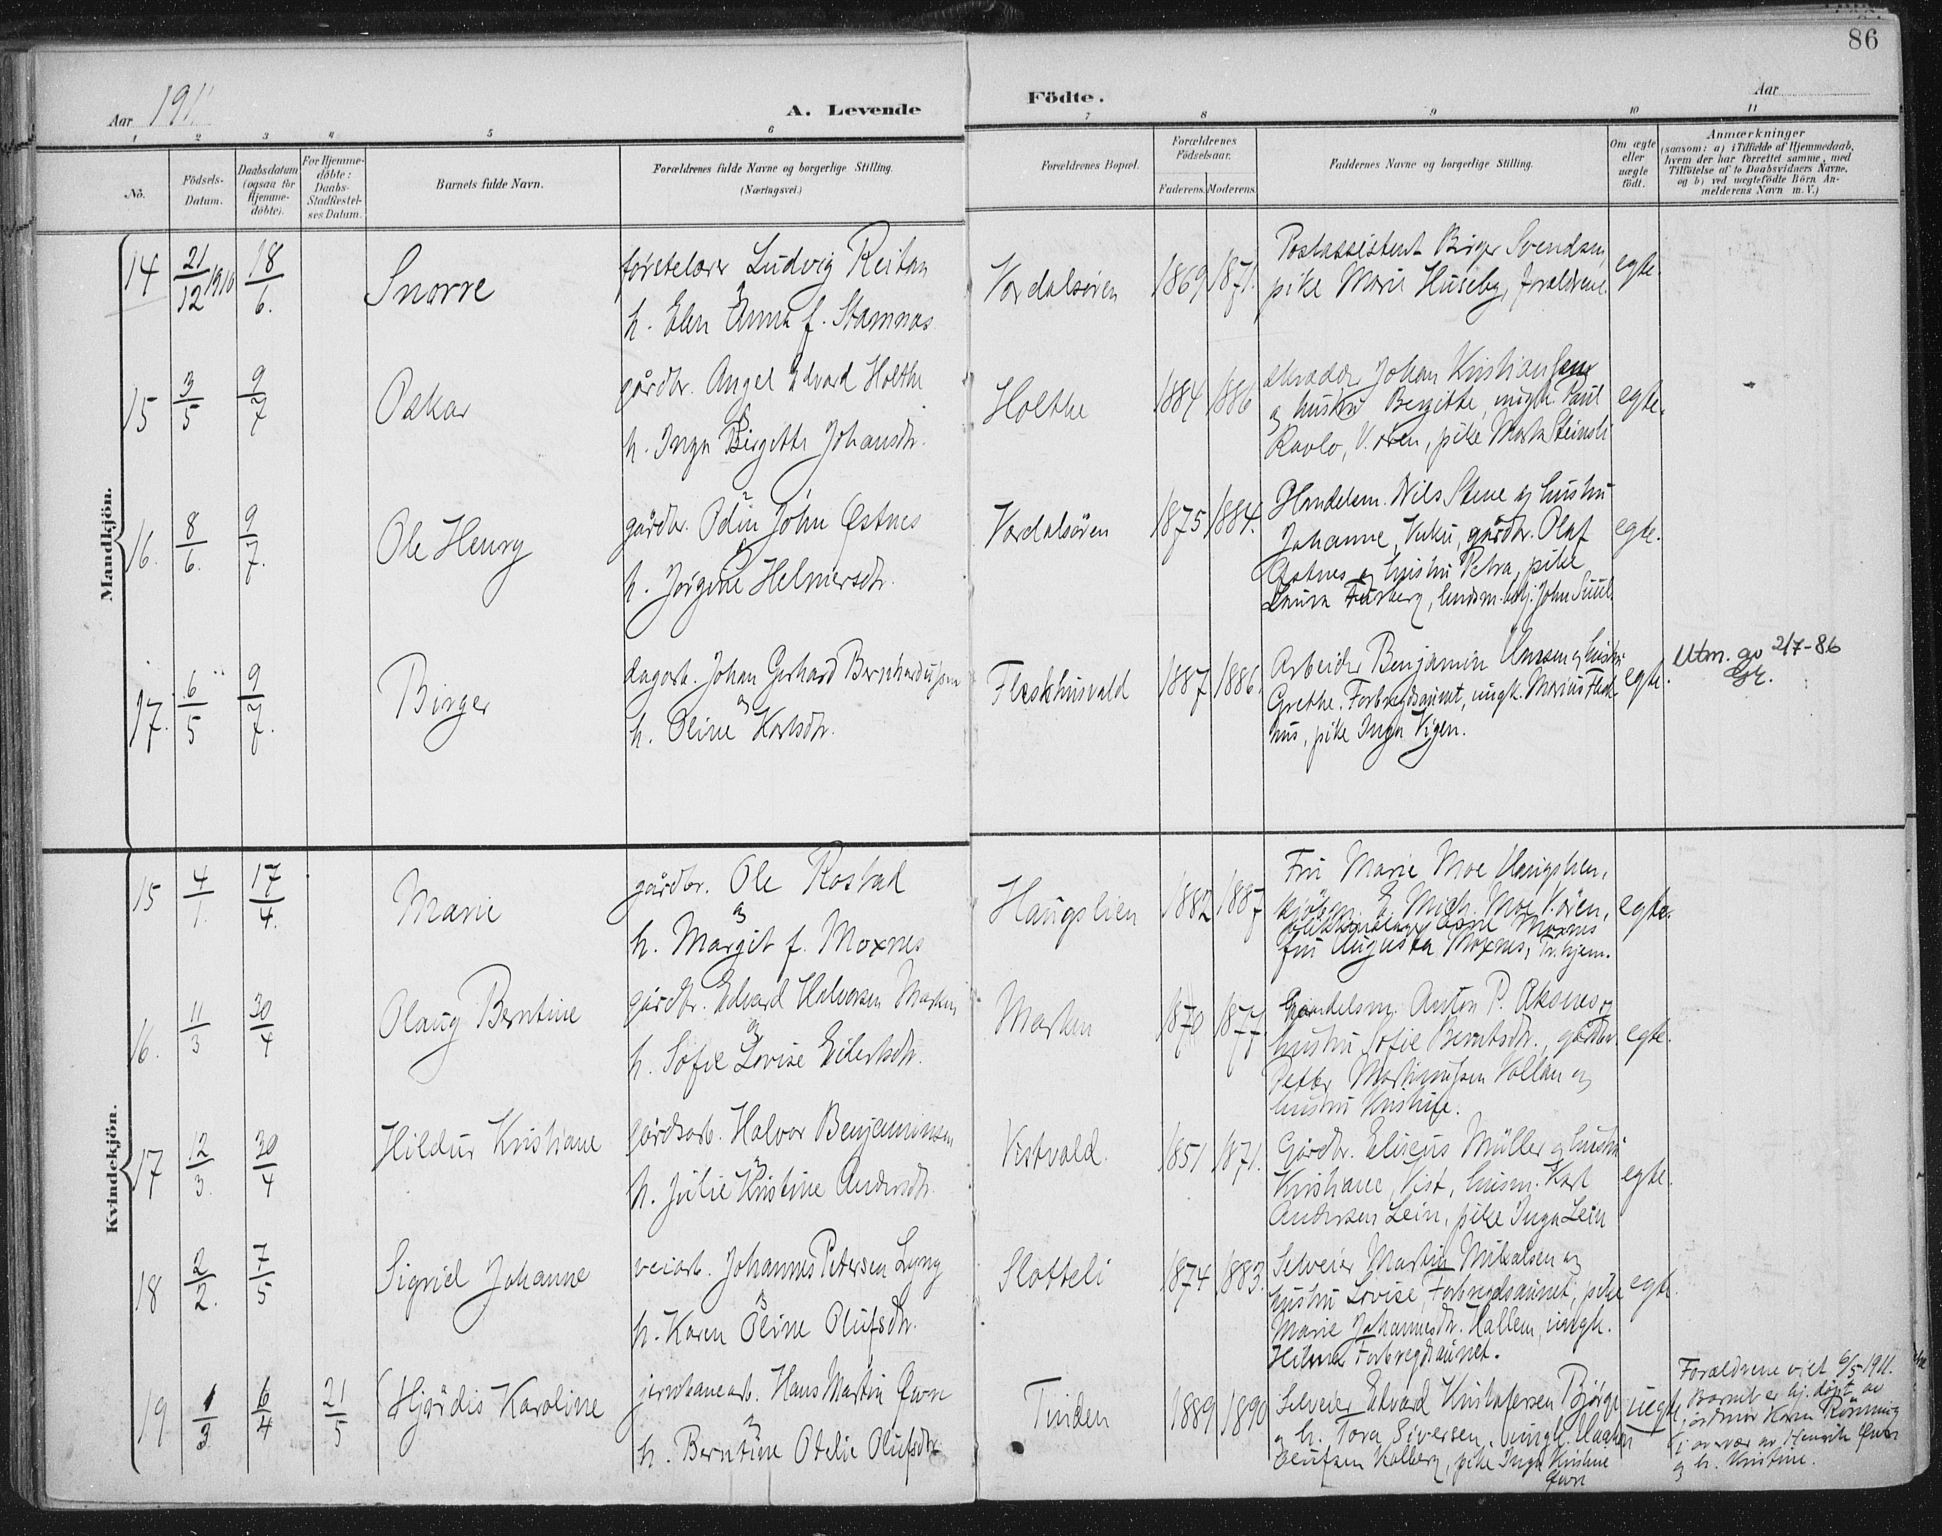 86
Aar 1911
A. Levende
Födte.
Aar
1 2 3 4 5 6 7 8 9 10 11
No.
Födsels-Datum.
Daabsdatum (ogsaa for Hjemme-döbte).
For Hjemme-döbte: Daabs-Stadfæstel-ses Datum.
Barnets fulde Navn.
Forældrenes fulde Navne og borgerlige Stilling.
(Næringsvei.)
Forældrenes Bopæl.
Forældrenes Födselsaar.
Faderens. Moderens.
Faddernes Navne og borgerlige Stilling.
Om ægte eller uægte födt.
Anmærkninger
(saasom: a) i Tilfælde af Hjemmedaab,
hvem der har forrettet samme, med
Tilföielse af to Daabsvidners Navne,
og b) ved uægtefödte Börn An-
melderens Navn m. V.)
Mandkjön.
14 21/12 1910 18/6. Snorre
Ludvig Reitan
og
h. Elen Anna f. Stamnas
Værdalsøren 1869 1871.
Postassistent Birger Svendsen,
pike Marie Huseby, forældrene
egte.
15 3/5 9/7 Oskar
gårdbr. Angel Edvard Holthe
og
h. Inga Birgitte Johansdr.
Holthe 1884 1886
Johan Kristiansen
og hustru Bergitte, ungk. Paul
Ravlo, V.ören, pike Marta Steinsli
egte.
16. 8/6. 9/7. Ole Henry
gårdbr. Odin John Østnes
og
h. Jørgine Helmersdr.
Værdalsören 1875 1884.
Handelsm. Nils Stene og hustru
Johanne, Vuku, gårdbr. Olaf
Østnes og hustru Petra, pike
Laura Furberg, lensm.betj. John Suul
egte.
17. 6/5 9/7. Birger
dagarb. Johan Gerhard Bernhardussen
og
h. Oline Karlsdr.
Fleskhusvald 1887 1886.
Arbeider Benjamin Unssen og hustru
Grethe, Forbregdsaunet, ungk. Marius Flesk-
hus, pike Inga Vigen.
egte.
Utm. av 2/7-86
Kvindekjön.
15 4/1. 17/4. Marie
gårdbr. Ole Rostad
og
h. Margit f. Moxnes
Haugslien 1882 1887
Fru Marie Moe Haugslien,
kjöbm. E. Mich. Moe V.ören,
Arne Moxnes
fru Augusta Moxnes, Tr.hjem.
egte.
16. 11/3 30/4 Olaug Berntine
gårdbr. Edvard Halvorsen Marken
og
h. Sofie Lovise Eilertsdr.
Marken 1870 1877
Handelsm. Anton P. Aksnes og
hustru Sofie Berntsdr., gårdbr.
Petter Martinussen Vollan og
hustru Kristine.
egte.
17 12/3. 30/4 Hildur Kristiane
gårdsarb. Halvor Benjaminsen
og
h. Julie Kristine Andersdr.
Vistvald. 1851 1871.
Gårdbr. Eliseus Müller og hustru
Kristiane, Vist, husm. Karl
Andersen Lein, pike Inga Lein
egte.
18 2/2. 7/5 Sigrid Johanne
veiarb. Johannes Petersen Lyng
og
h. Karen Oline Olufsdr.
Slotteli 1874 1883.
Selveier Martin Mikalsen og
hustru Lovise, Forbregdsaunet, pike
Marie Johannesdr. Hallem, ungk.
Hilmar Forbregdsaunet.
egte.
19 1/3 6/4 21/5 Hjørdis Karoline
jernbanearb. Hans Martin Øvre
og
h. Berntine Otelie Olufsdr.
Tinden 1889 1890
Selveier Edvard Kristofersen Bjørge
og h. Tora Siversen, ungk. Haakon
Olufsen Kolberg, pike Inga Kristine
Øvre
uegte.
Forældrene viet 6/5 1911.
Barnet er hj.döpt av
jordmor Karen Rönning
i overvær av Henrik Øvre
og h. Kristine.